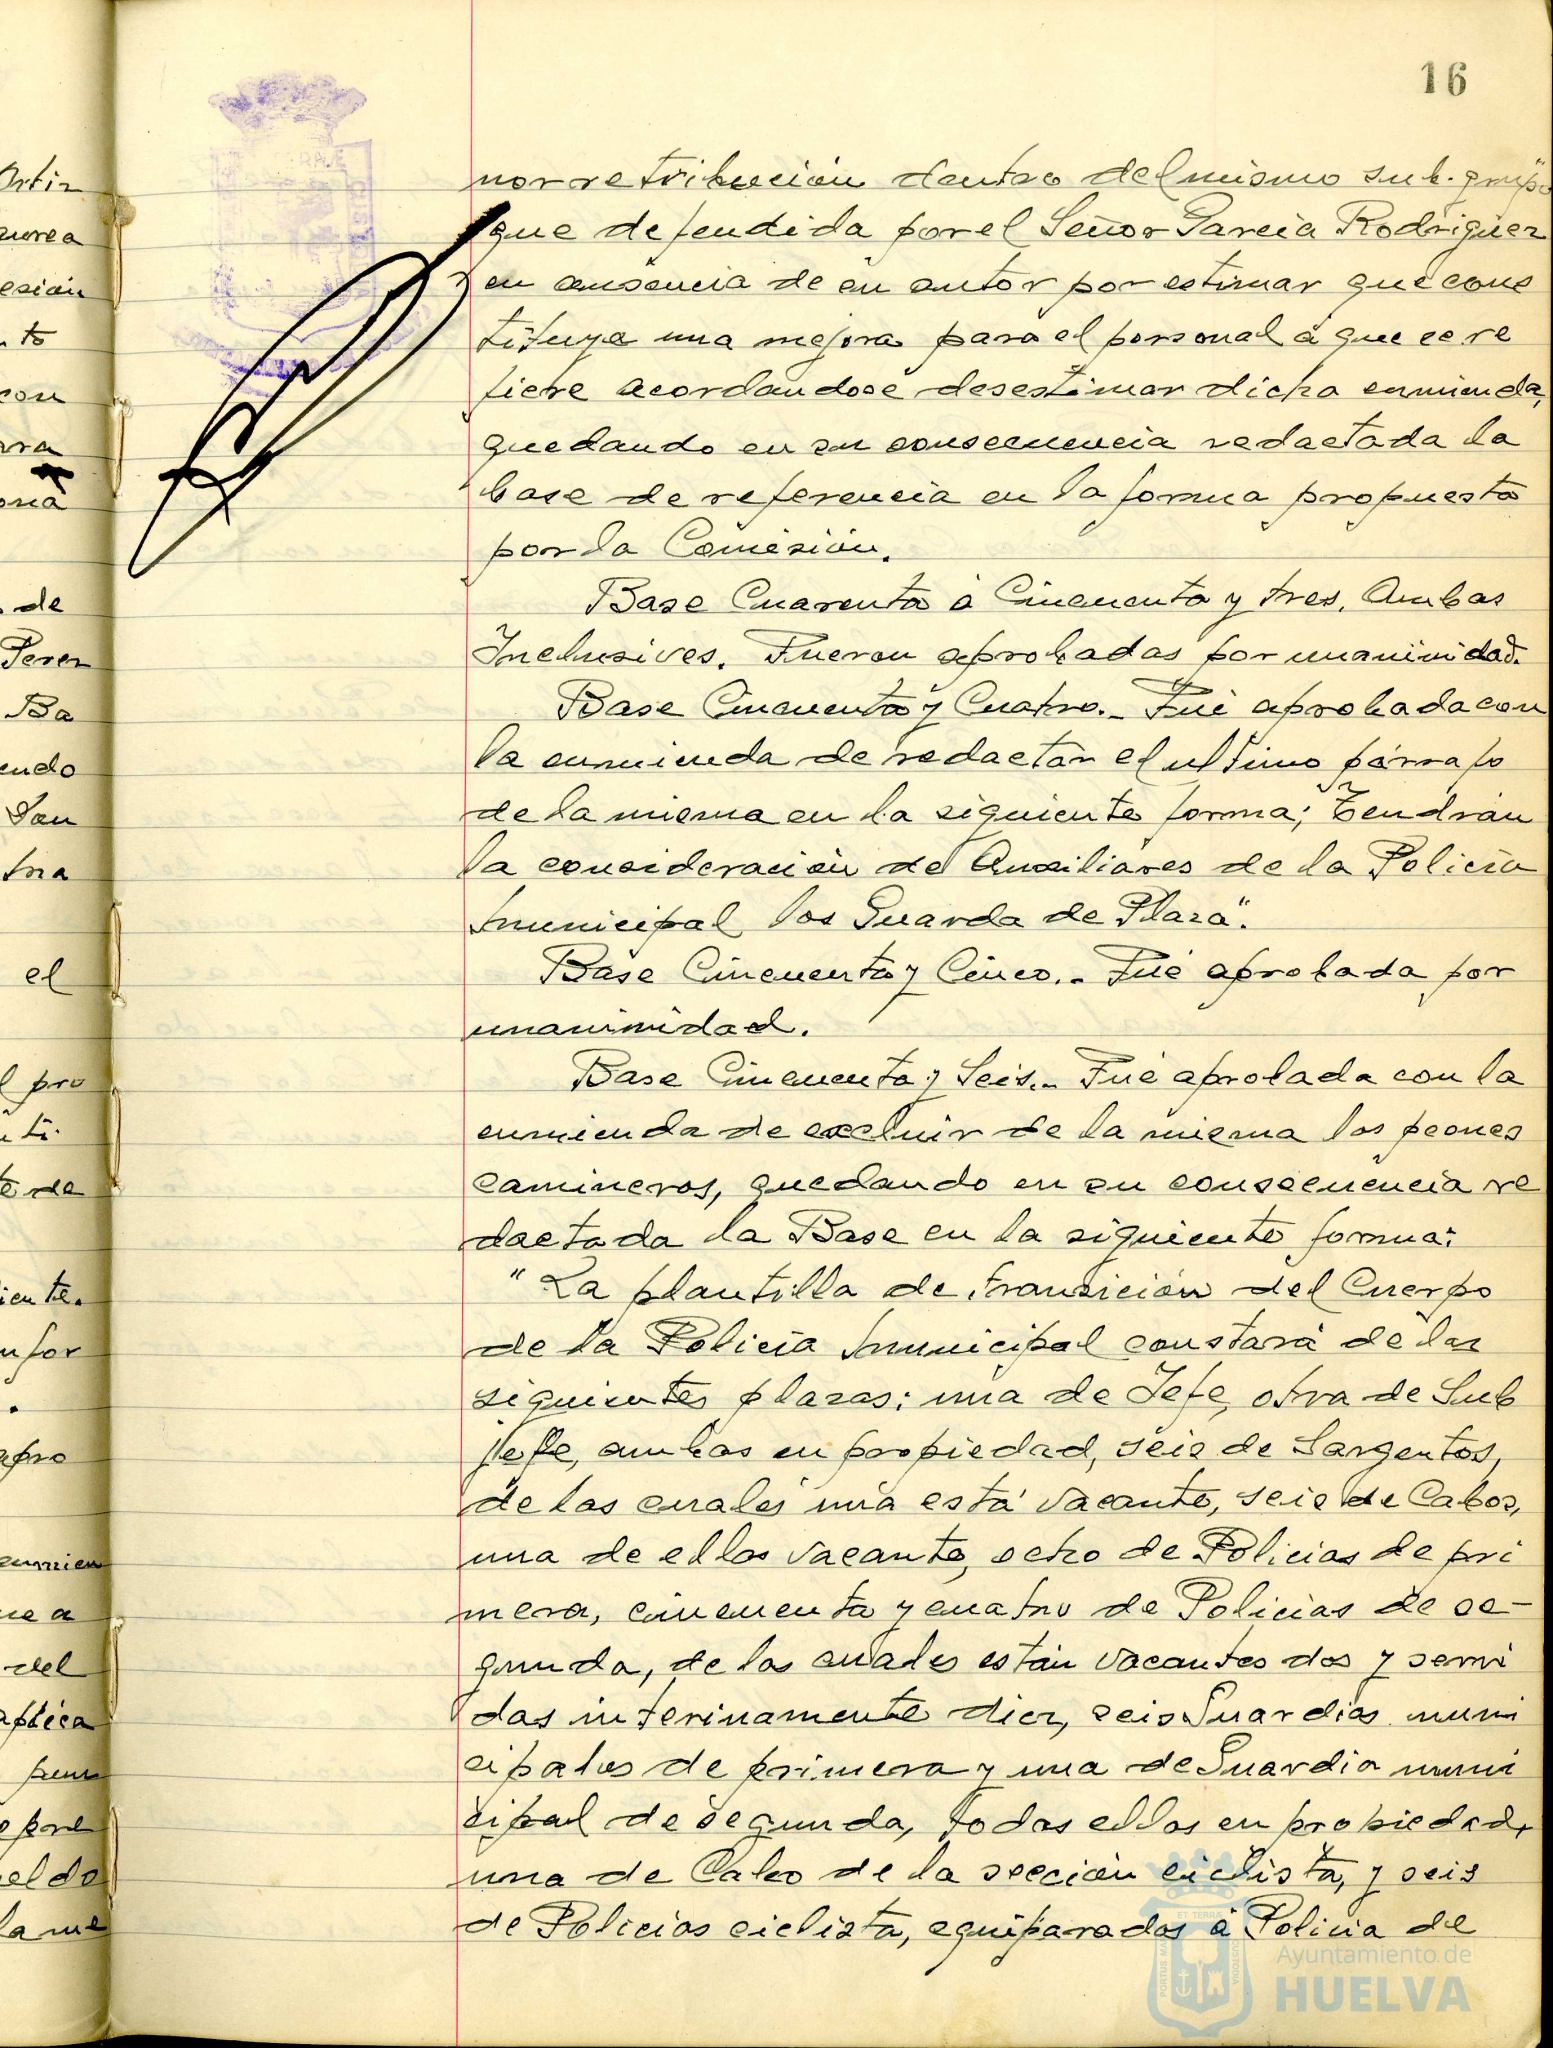 16
nor retribución dentro del mismo sub-grupo"
que defendida por el Señor García Rodriguez
en ausencia de su autor por estimar que cons
tituya una mejora para el personal á que se re
fiere acordandose desestimar dicha enmienda,
quedando en su consecuencia redactada la
base de referencia en la forma propuesta
por la Comisión.
Base Cuarenta a Cincuenta y tres, Ambas
Inclusives. Fueron aprobadas por unanimidad.
Base Cincuenta y Cuatro.- Fué aprobada con
la enmienda de redactar el ultimo párrafo
de la misma en la siguiente forma; "Tendrán
la consideración de Auxiliares de la Policía
Municipal los Guarda de Plaza".
Base Cincuenta y Cinco.- Fué aprobada por
unanimidad.
Base Cincuenta y Seis.- Fué aprobada con la
enmienda de excluir de la misma los peones
camineros, quedando en su consecuencia re
dactada la Base en la siguiente forma:
"La plantilla de transición del Cuerpo
de la Policía Municipal constará de las
siguientes plazas: una de Jefe, otra de Sub
Jefe, ambas en propiedad, seis de Sargentos,
de las cuales una está vacante, seis de Cabos,
una de ellas vacante, ocho de Policias de pri
mera, cincuenta y cuatro de Policías de se-
gunda, de las cuales están vacantes dos y servi
das interinamente diez, seis Guardias muni
cipales de primera y una de Guardia muni
cipal de segunda, todas ellas en propiedad,
una de Cabo de la sección ciclista, y seis
de Policías ciclista, equiparados á Policia de
Ayuntamiento de
HUELVA
Ortiz
esión
nto
con
de
Perez
Ba
endo
San
el
pro
te de
iente.
nfor
apro
del
el do
la me